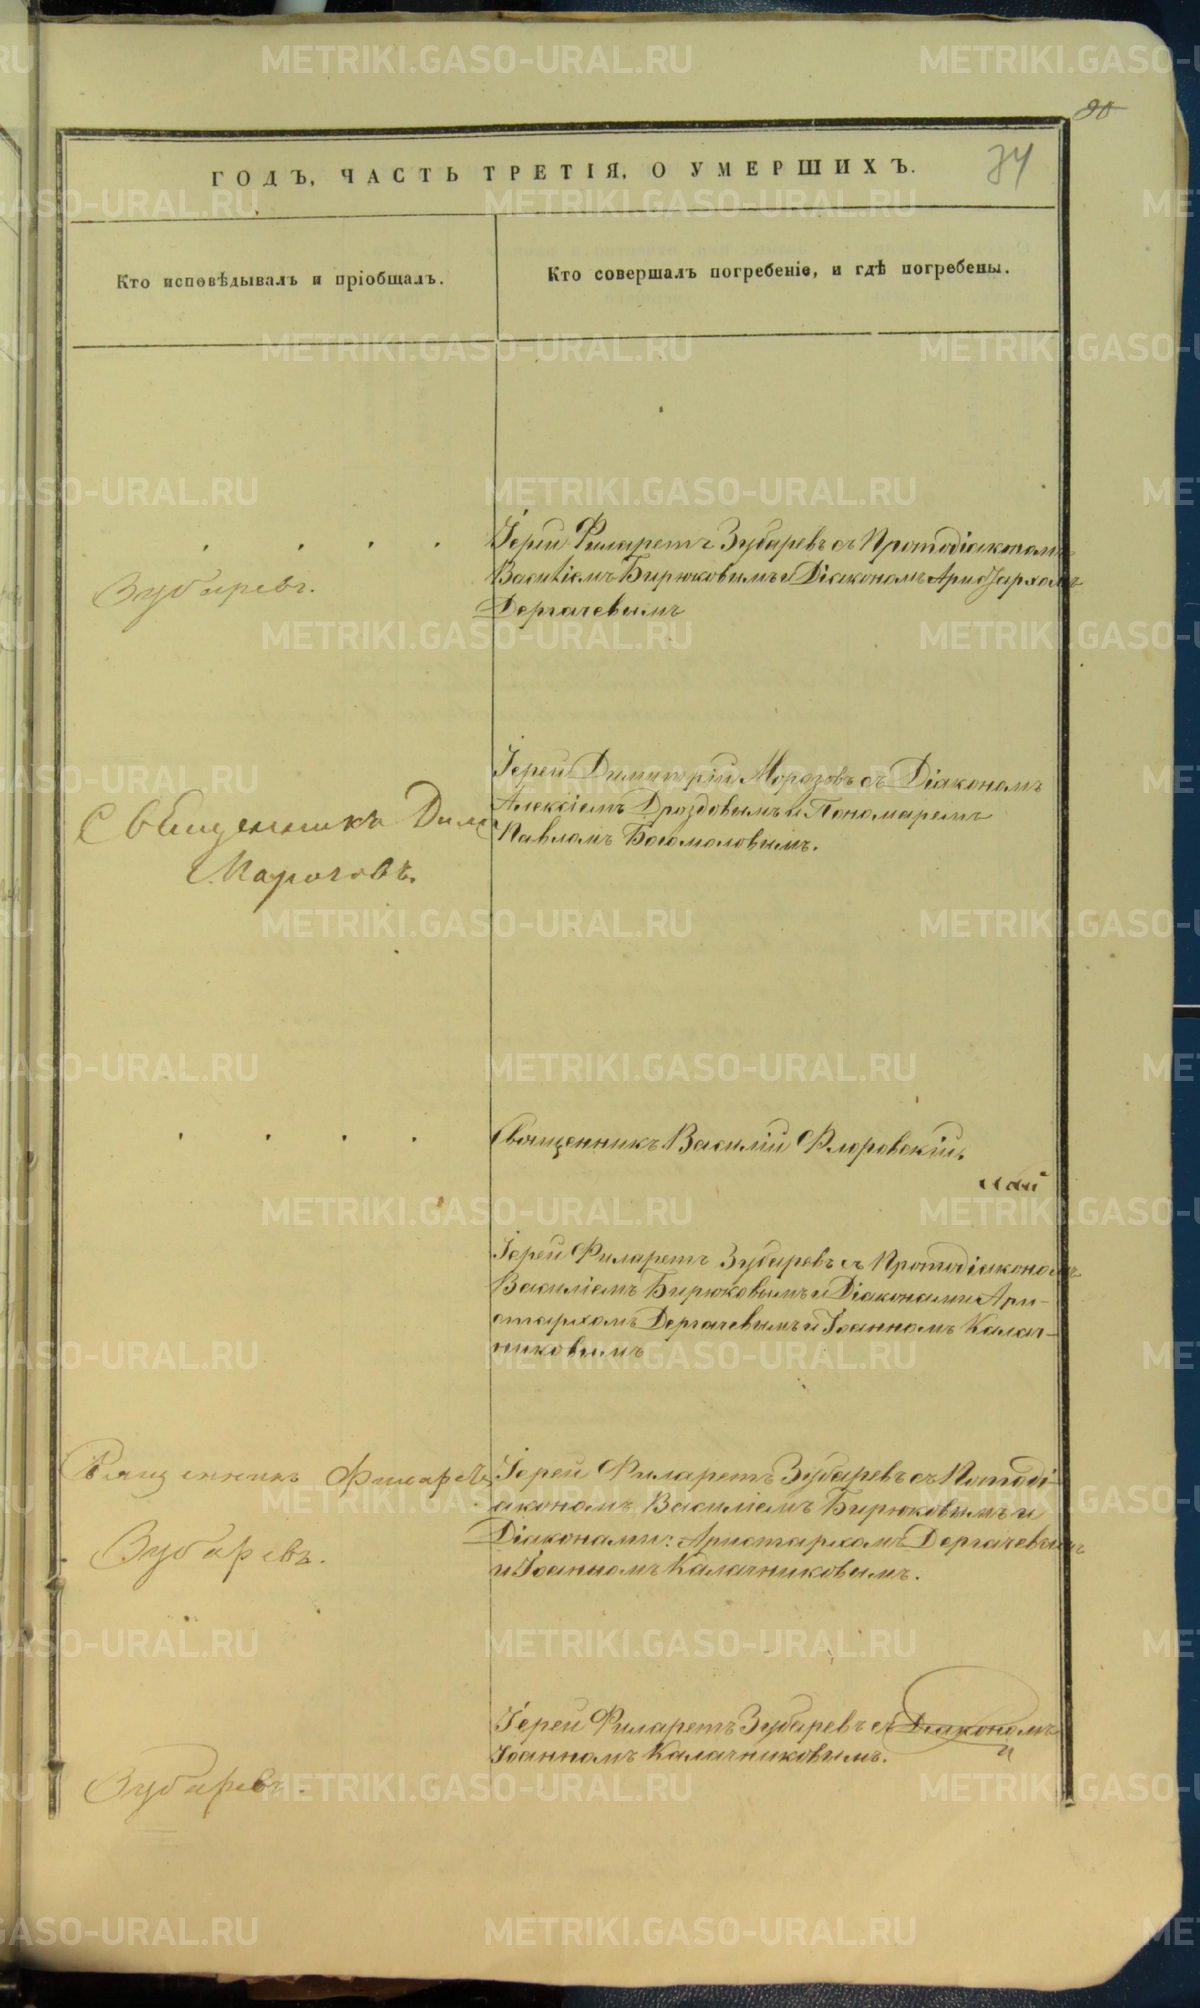 90
34
ГОДЪ, ЧАСТЬ ТРЕТІЯ, О УМЕРШИХЪ.
Кто исповѣдывалъ и пріобщалъ.
Кто совершалъ погребеніе, и гдѣ погребены.
. . . .
Зубаревъ.
Іерей Филаретъ Зубаревъ съ Протодіакономъ
Василіемъ Бирюковымъ и Діакономъ Аристархомъ
Дергачевымъ
Священникъ Дим
Морозовъ.
Іерей Димитрій Морозовъ съ Діакономъ
Алексіемъ Дроздовымъ и Пономаремъ
Павломъ Богомоловымъ.
. . . .
Священникъ Василій Флоровскій.
Іерей Филаретъ Зубаревъ съ Протодіакономъ
Василіемъ Бирюковымъ и Діаконами Ари-
стархомъ Дергачевымъ и Іоанномъ Калач-
никовымъ
Священникъ Филаретъ
Зубаревъ.
Іерей Филаретъ Зубаревъ съ Потоді-
акономъ Василіемъ Бирюковымъ и
Діаконами: Аристархомъ Дергачевымъ
и Іоанномъ Калачниковымъ.
Зубаревъ.
Іерей Филаретъ Зубаревъ съ Діакономъ
Іоанномъ Калачниковымъ.
METRIKI.GASO-URAL.RU